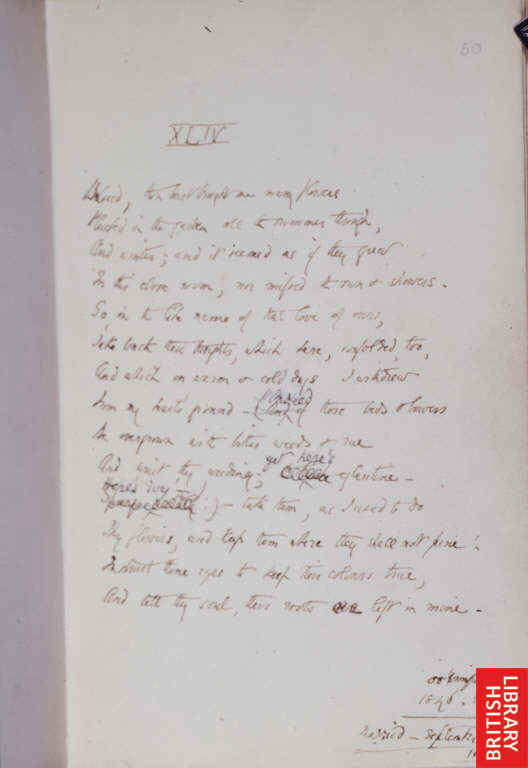 50
XLIV
Beloved, thou hast brought me many flowers
Plucked in the garden all the summer through,
And winter; and it seemed as if they grew
In this close room, nor missed the sun & showers.
So, in the like name of that love of ours,
Take back these thoughts, which here, unfolded, too,
And which on warm & cold days I withdrew
From my heart's ground - (Indeed of those beds & bowers
Be overgrown with bitter weeds & rue
And wait thy weeding; yet here's eglantine -
here's ivy!) - take them, as I used to do
Thy flowers, and keep them where they shall not pine!
Instruct thine eyes to keep their colours true,
And tell thy soul, their roots are left in mine -
1846.
Married - September
BRITISH LIBRARY